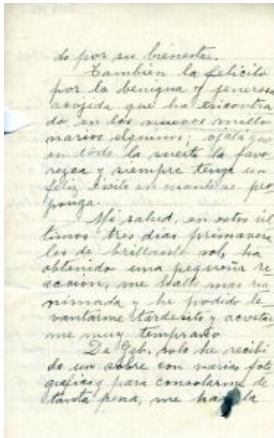 do por su bienestar.
También la felicito
por la benigna y jenerosa
acojida que ha encontra
do en los nuevos millo
narios elquinos; ojalá que
en todo la suerte la favo
rezca y siempre tenga un
feliz éxito en cuanto se pro
ponga.
Mi salud, en estos úl
timos tres días primavera
les de brillante sol, ha
obtenido una pequeña re
acción, me hallo mas rea
nimada y he podido le
vantarme tardesito y acostar
me muy temprano
De Gab. solo he recibi
do un sobre con varias foto
grafías y para consolarme de
tanta pena, me